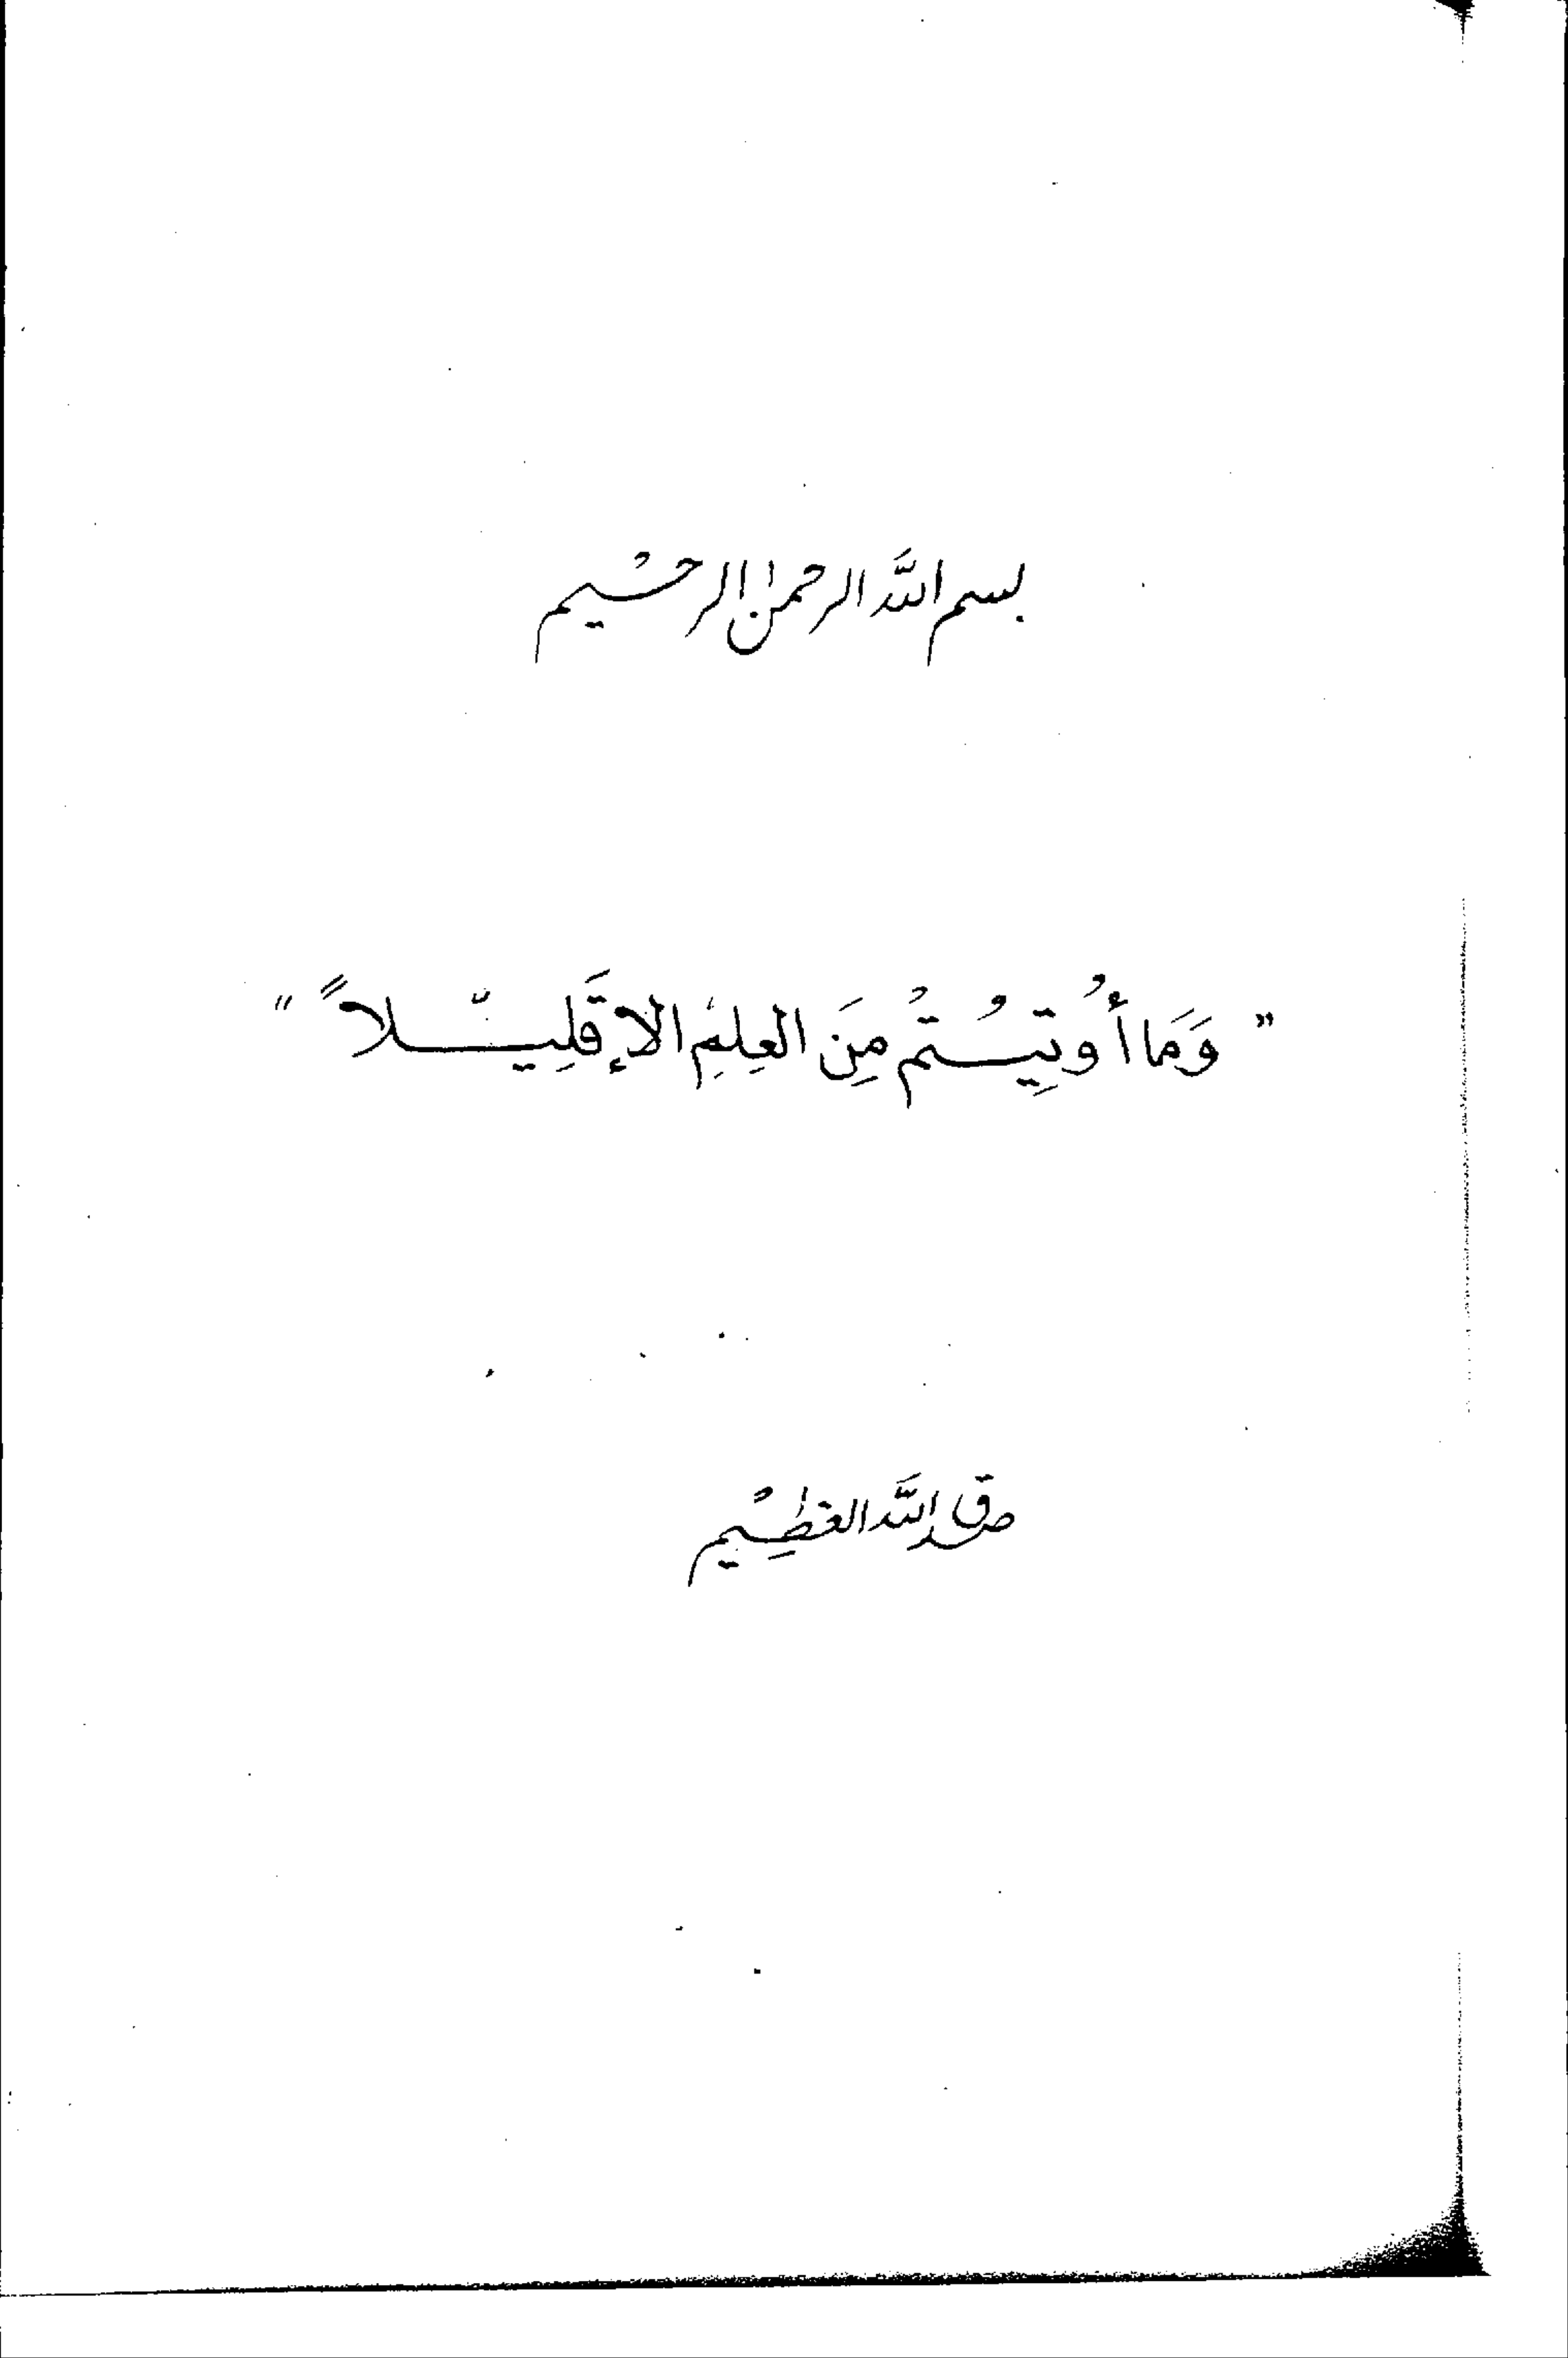 بسم الله الرحمن الرحيم
" وَمَا أُوتِيتُمْ مِنَ العِلمِ الا إقَلِيلاً "
صدق الله العظيم